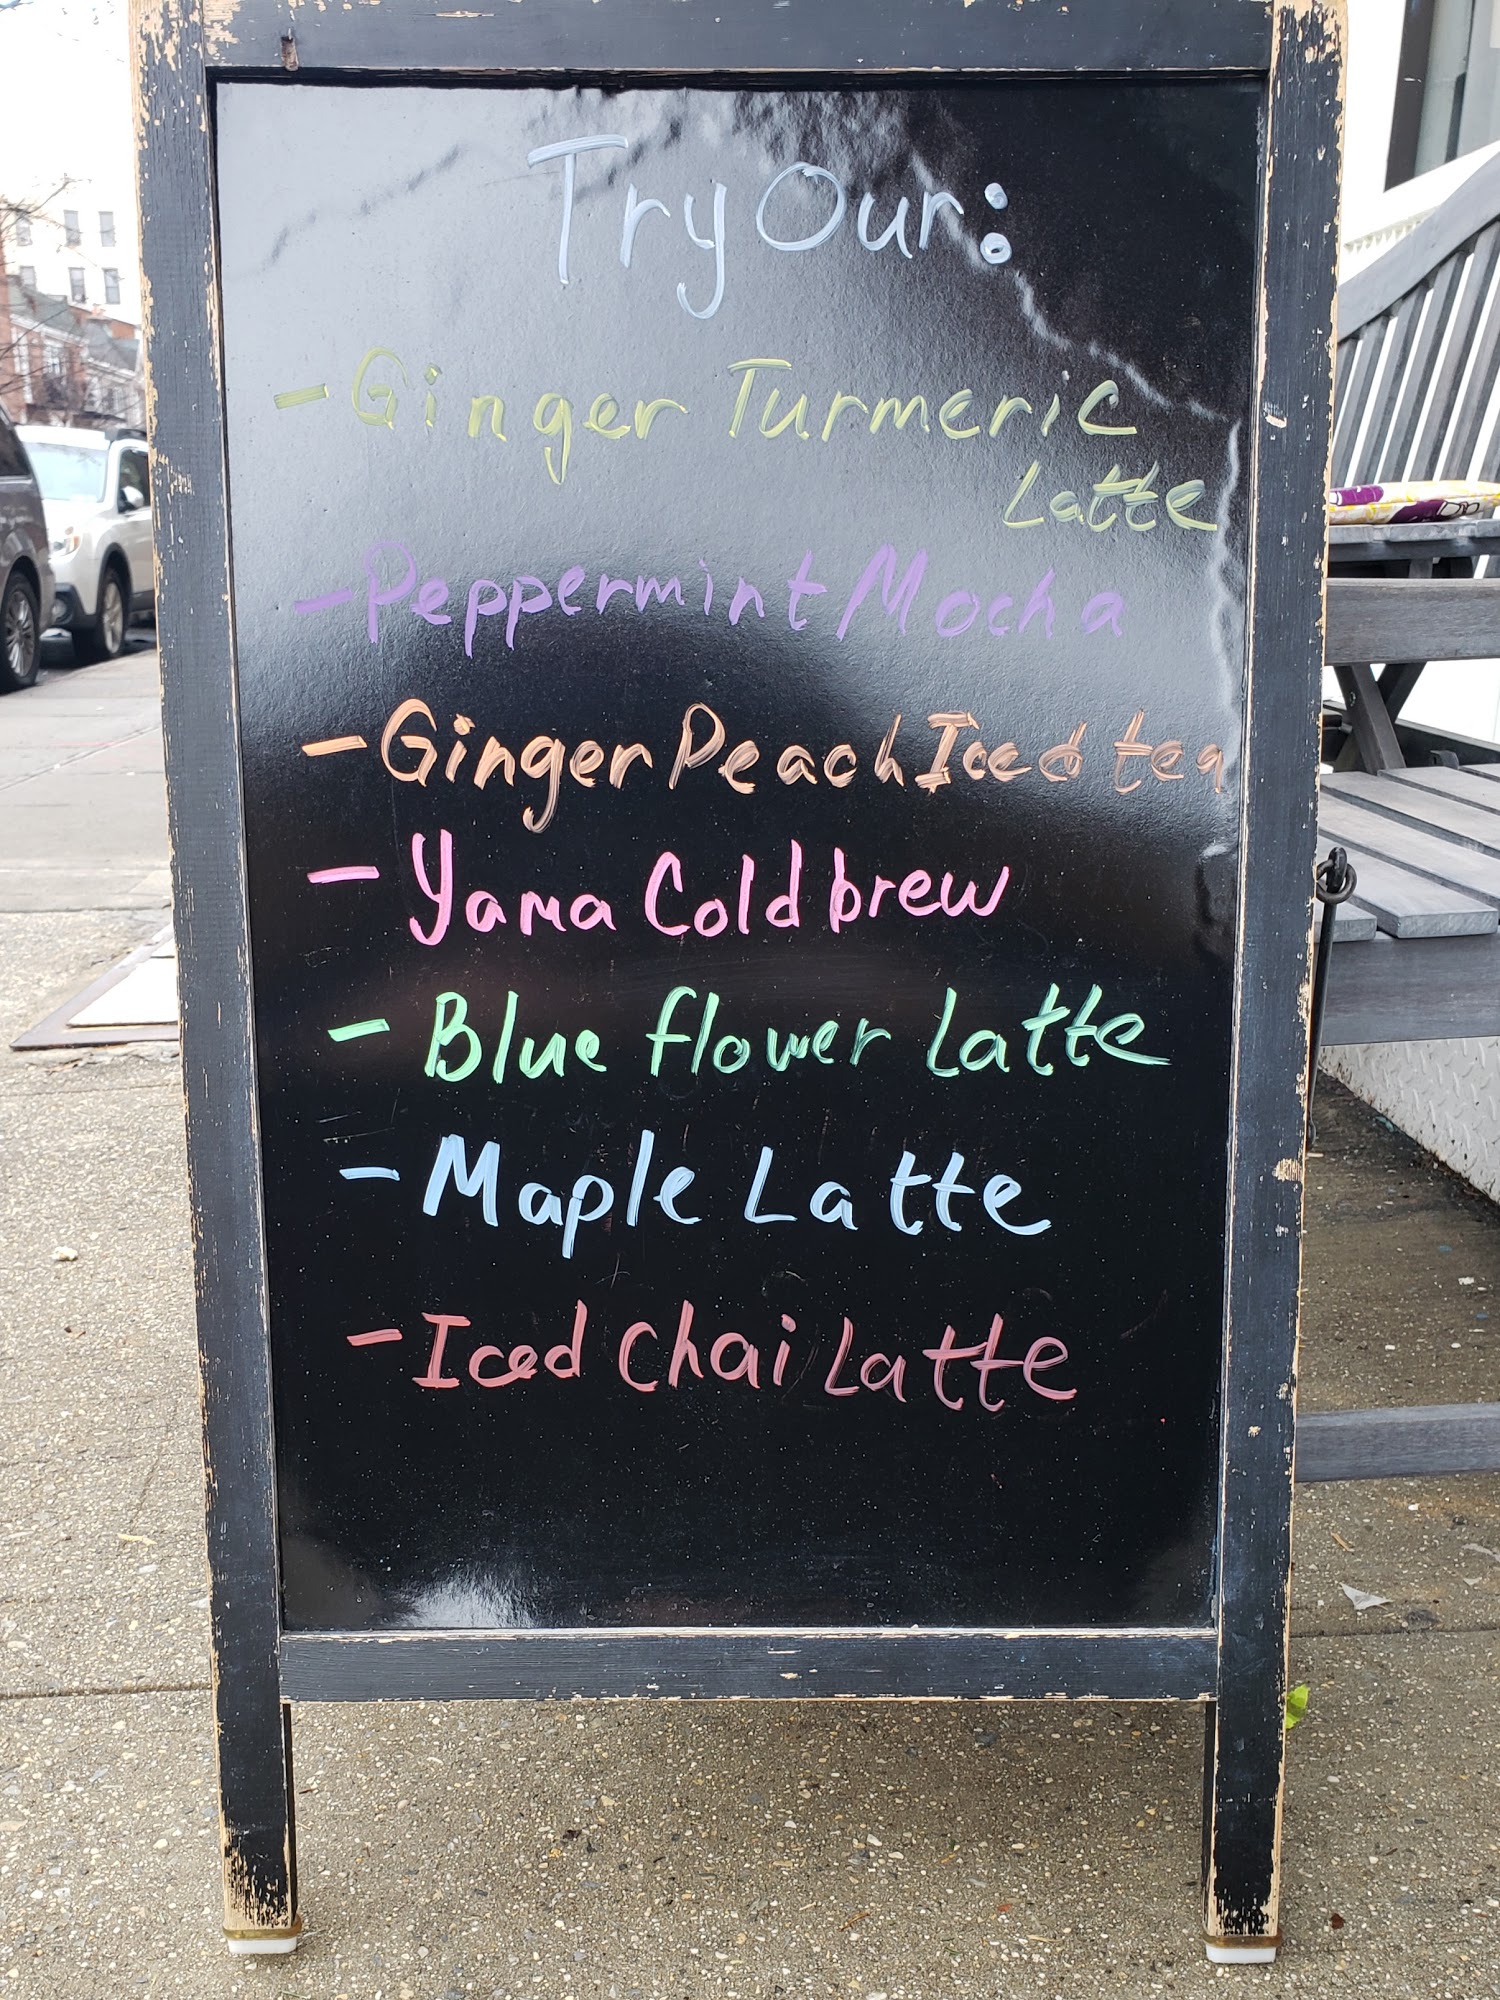 Try Our:
- Ginger Turmeric
Latte
- Peppermint Mocha
- Ginger Peach Iced tea
- Yama Cold brew
- Blue flower Latte
- Maple Latte
- Iced Chai Latte